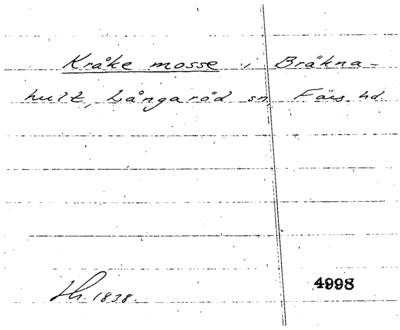 Kråke mosse, Bräkna-
hult, Långaröd sn, Färs hd.
1838.
4998